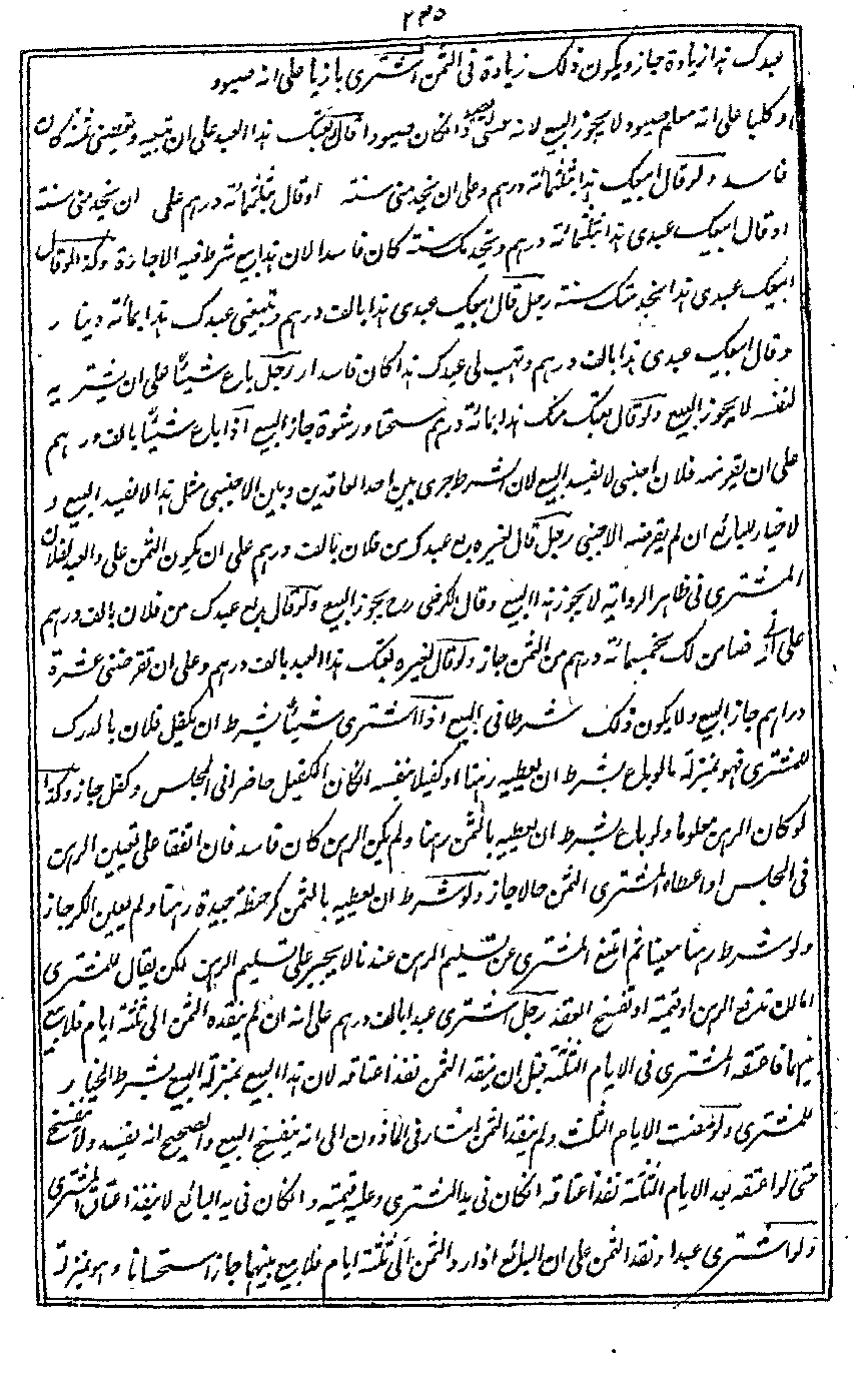 ٢٣٥
عبدك هذا زيادة جاز ويكون ذلك زيادة فى الثمن اشترى بازيا على انه صيود
او كلبا على انه معلم صيود لا يجوز البيع لانه عسى لا يصيد وان كان صيودا قال بعتك هذا العبد على ان تبيعه وتقضينى ثمنه كان
فاسدا ولو قال ابيعك هذا بثلثمائة درهم وعلى ان يخدمنى سنة اوقال بثلثمائة درهم على ان يخدمنى سنة
او قال ابيعك عبدى هذا بثلثمائة درهم ويخدمك سنة كان فاسدا لان هذا بيع شرط فيه الاجارة وكذا لو قال
ابيعك عبدى هذا بخدمتك سنة رجل قال ابيعك عبدى هذا بالف درهم وتبيعنى عبدك هذا بمائة دينار
وقال ابيعك عبدى هذا بالف درهم وتهب لى عبدك هذا كان فاسدا رجل باع شيئا على ان يشتريه
لنفسه لا يجوز البيع ولو قال بعتك منك هذا بمائة درهم سحتا ورشوة جاز البيع اذا باع شيئا بالف درهم
على ان يقرضه فلان اجنبى لا يفسد البيع لان الشرط جرى بين احد العاقدين وبين الاجنبى مثل هذا لا يفسد البيع و
لا خيار للبائع ان لم يقرضه الاجنبى رجل قال لغيره بع عبدك من فلان بالف درهم على ان يكون الثمن على والعبد لفلان
المشترى فى ظاهر الرواية لا يجوز هذا البيع وقال الكرخى رح يجوز البيع ولو قال بع عبدك من فلان بالف درهم
على انى ضامن لك بخمسمائة درهم من الثمن جاز ولو قال لغيره بعتك هذا العبد بالف درهم وعلى ان تقرضنى عشرة
دراهم جاز البيع ولا يكون ذلك شرطا فى البيع اذا اشترى شيئا بشرط ان يكفل فلان بالدرك
للمشترى فهو بمنزلة ما لو باع بشرط ان يعطيه رهنا او كفيلا بنفسه ان كان الكفيل حاضرا فى المجلس وكفل جاز وكذا
لو كان الرهن معلوما ولو باع بشرط ان يعطيه بالثمن رهنا ولم يكن الرهن كان فاسدا فان اتفقا على تعيين الرهن
فى المجلس او اعطاه المشترى الثمن حالا جاز ولو شرط ان يعطيه بالثمن كر حنطة جيدة رهنا ولم يعين الكر جاز
ولو شرط رهنا معينا ثم امتنع المشترى عن تسليم الرهن عندنا لا يجبر على تسليم الرهن لكن يقال للمشترى
اما ان تدفع الرهن او قيمته او تفسخ العقد رجل اشترى عبدا بالف درهم على انه ان لم ينقده الثمن الى ثلثة ايام فلا بيع
بينهما فاعتقه المشترى فى الايام الثلثة قبل ان ينقد الثمن نفذ اعتاقه لان هذا البيع بمنزلة البيع بشرط الخيار
للمشترى ولو مضت الايام الثلث ولم ينقد الثمن اشار فى الماذون الى انه ينفسخ البيع والصحيح انه يفسد ولا ينفسخ
حتى لو اعتقه بعد الايام الثلثة نفذ اعتاقه ان كان فى يد المشترى وعليه قيمته وان كان فى يد البائع لا ينفذ اعتاق المشترى
ولو اشترى عبدا ونقد الثمن على ان البائع اذا رد الثمن الى ثلثة ايام فلا بيع بينهما جاز استحسانا وهو بمنزلة